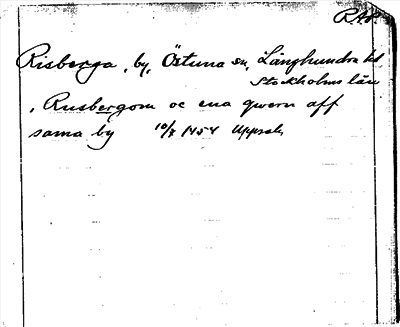 RAP.
Risberga, by, Östuna sn, Långhundra hd
Stockholms län
, Rusbergom oc ena qwern aff
sama by 10/8 1454 Uppsala